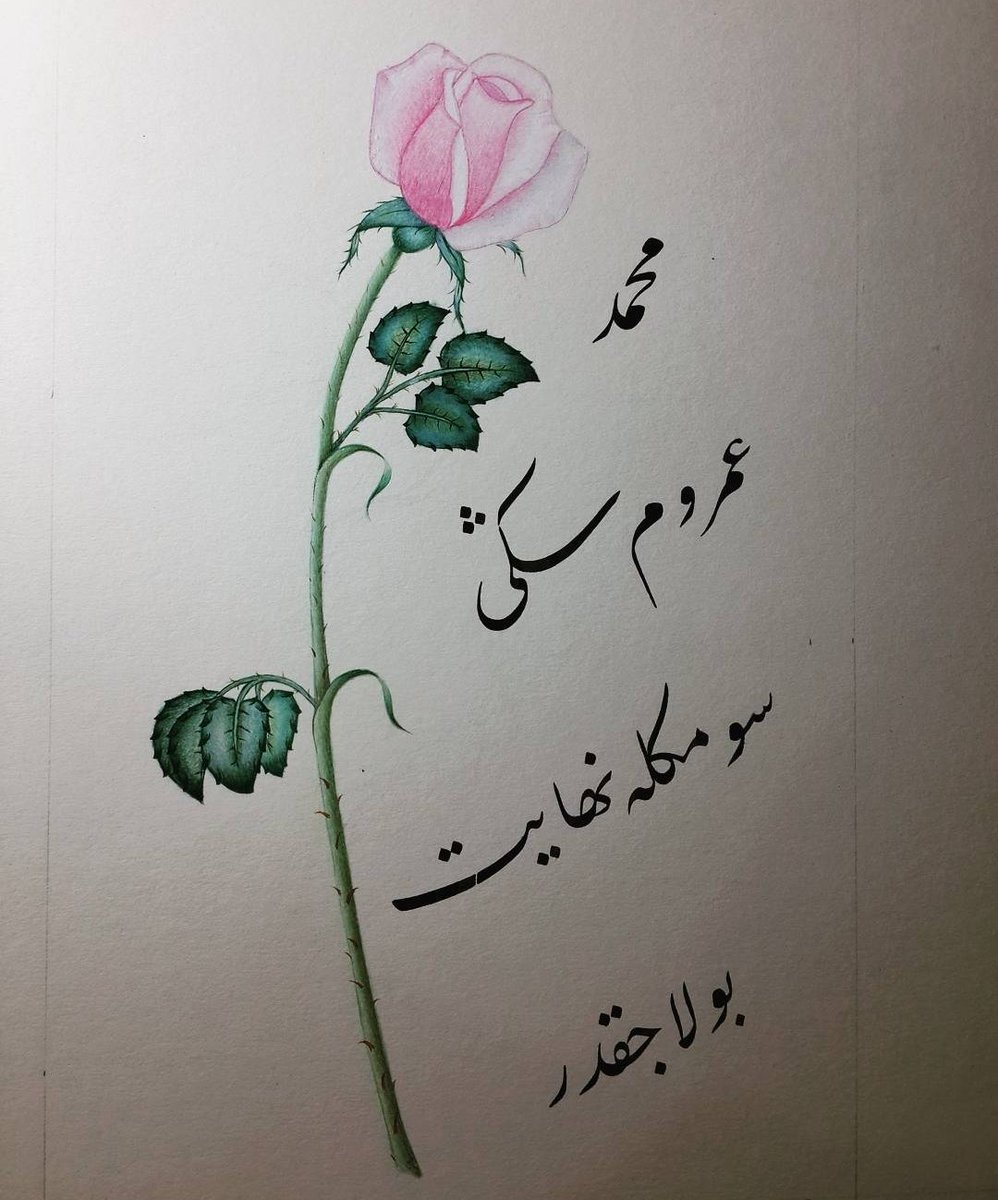 محمد
عمروم سڭى
سومكله نهايت
بولاجقدر